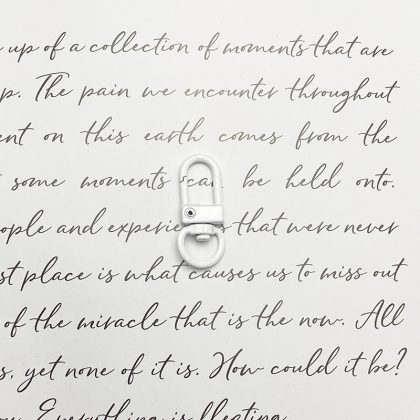 up of a collection of moments that are
p. The pain we encounter throughout
ent on this earth comes from the
some moments can be held onto.
ople and experie s that were never
st place is what causes us to miss out
of the miracle that is the now. All
s, yet none of it is. How could it be?
Everything is fleeting